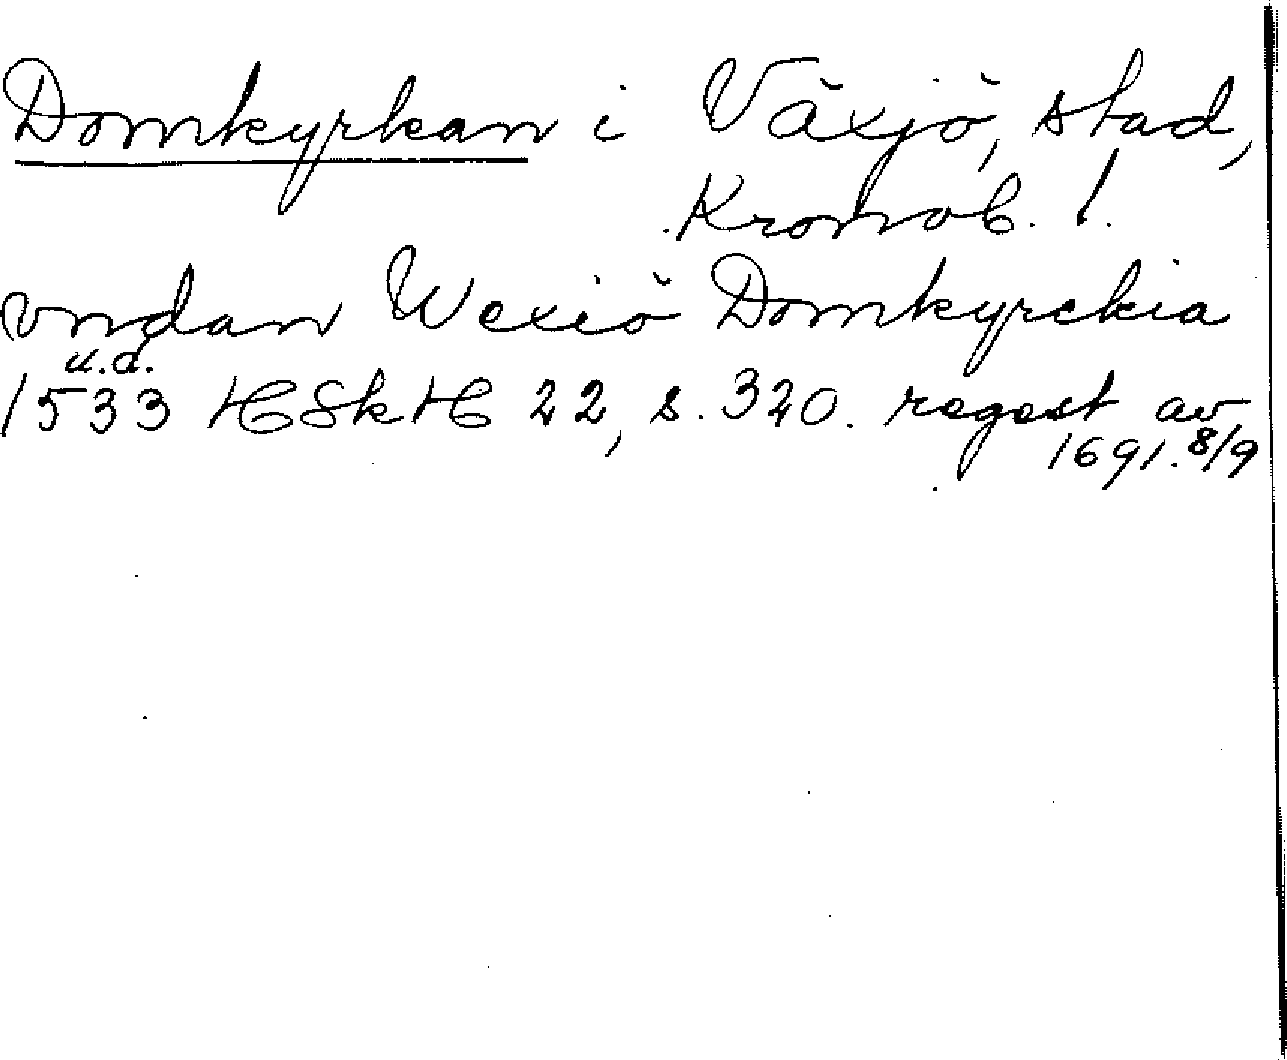 Domkyrkan i Växjö, stad,
Kronob. l.
vndan Wexiö Domkyrckia
u.d.
1533 HSkH 22, s. 320. regest av
1691. 8/9